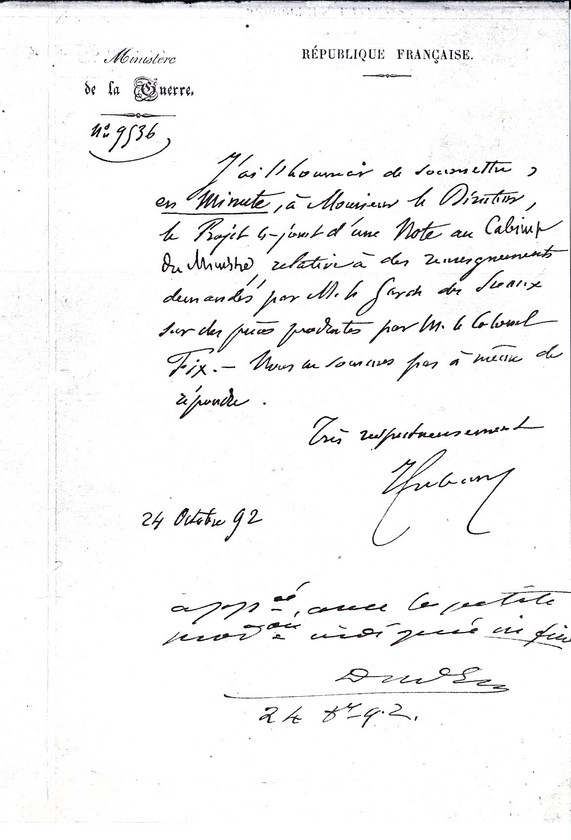 Ministère
RÉPUBLIQUE FRANÇAISE.
de la Guerre.
No 9536
J'ai l'honneur de soumettre,
en Minute, à Monsieur le Directeur,
le Projet ci-joint d'une Note au Cabinet
du Ministre, relative à des renseignements
demandés par M. le Garde des Sceaux
sur des pièces produites par M. le Colonel
Fix. — Nous ne sommes pas à même de
répondre.
Très respectueusement
24 Octobre 92
appé, avec la petite
indiquée in fine
24 8bre 92.